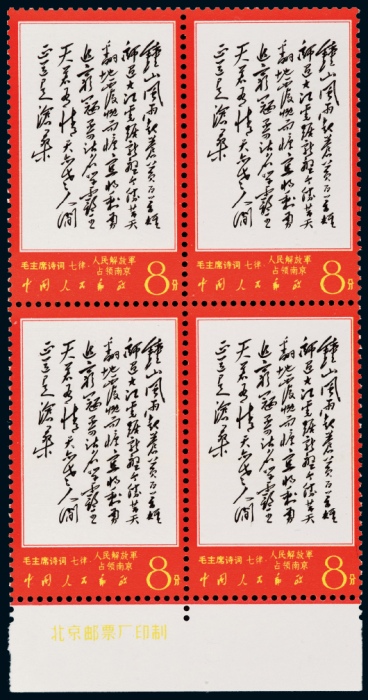 鍾山風雨起蒼黃百萬雄
師過大江虎踞龍盤今勝昔天
翻地覆慨而慷宜將剩勇
追窮寇不可沽名學霸王
天若有情天亦老人間
正道是滄桑
毛主席诗词 七律·人民解放軍
占领南京
中国人民邮政 8分
鍾山風雨起蒼黃百萬雄
師過大江虎踞龍盤今勝昔天
翻地覆慨而慷宜將剩勇
追窮寇不可沽名學霸王
天若有情天亦老人間
正道是滄桑
毛主席诗词 七律·人民解放軍
占领南京
中国人民邮政 8分
鍾山風雨起蒼黃百萬雄
師過大江虎踞龍盤今勝昔天
翻地覆慨而慷宜將剩勇
追窮寇不可沽名學霸王
天若有情天亦老人間
正道是滄桑
毛主席诗词 七律·人民解放軍
占领南京
中国人民邮政 8分
鍾山風雨起蒼黃百萬雄
師過大江虎踞龍盤今勝昔天
翻地覆慨而慷宜將剩勇
追窮寇不可沽名學霸王
天若有情天亦老人間
正道是滄桑
毛主席诗词 七律·人民解放軍
占领南京
中国人民邮政 8分
北京邮票厂印制